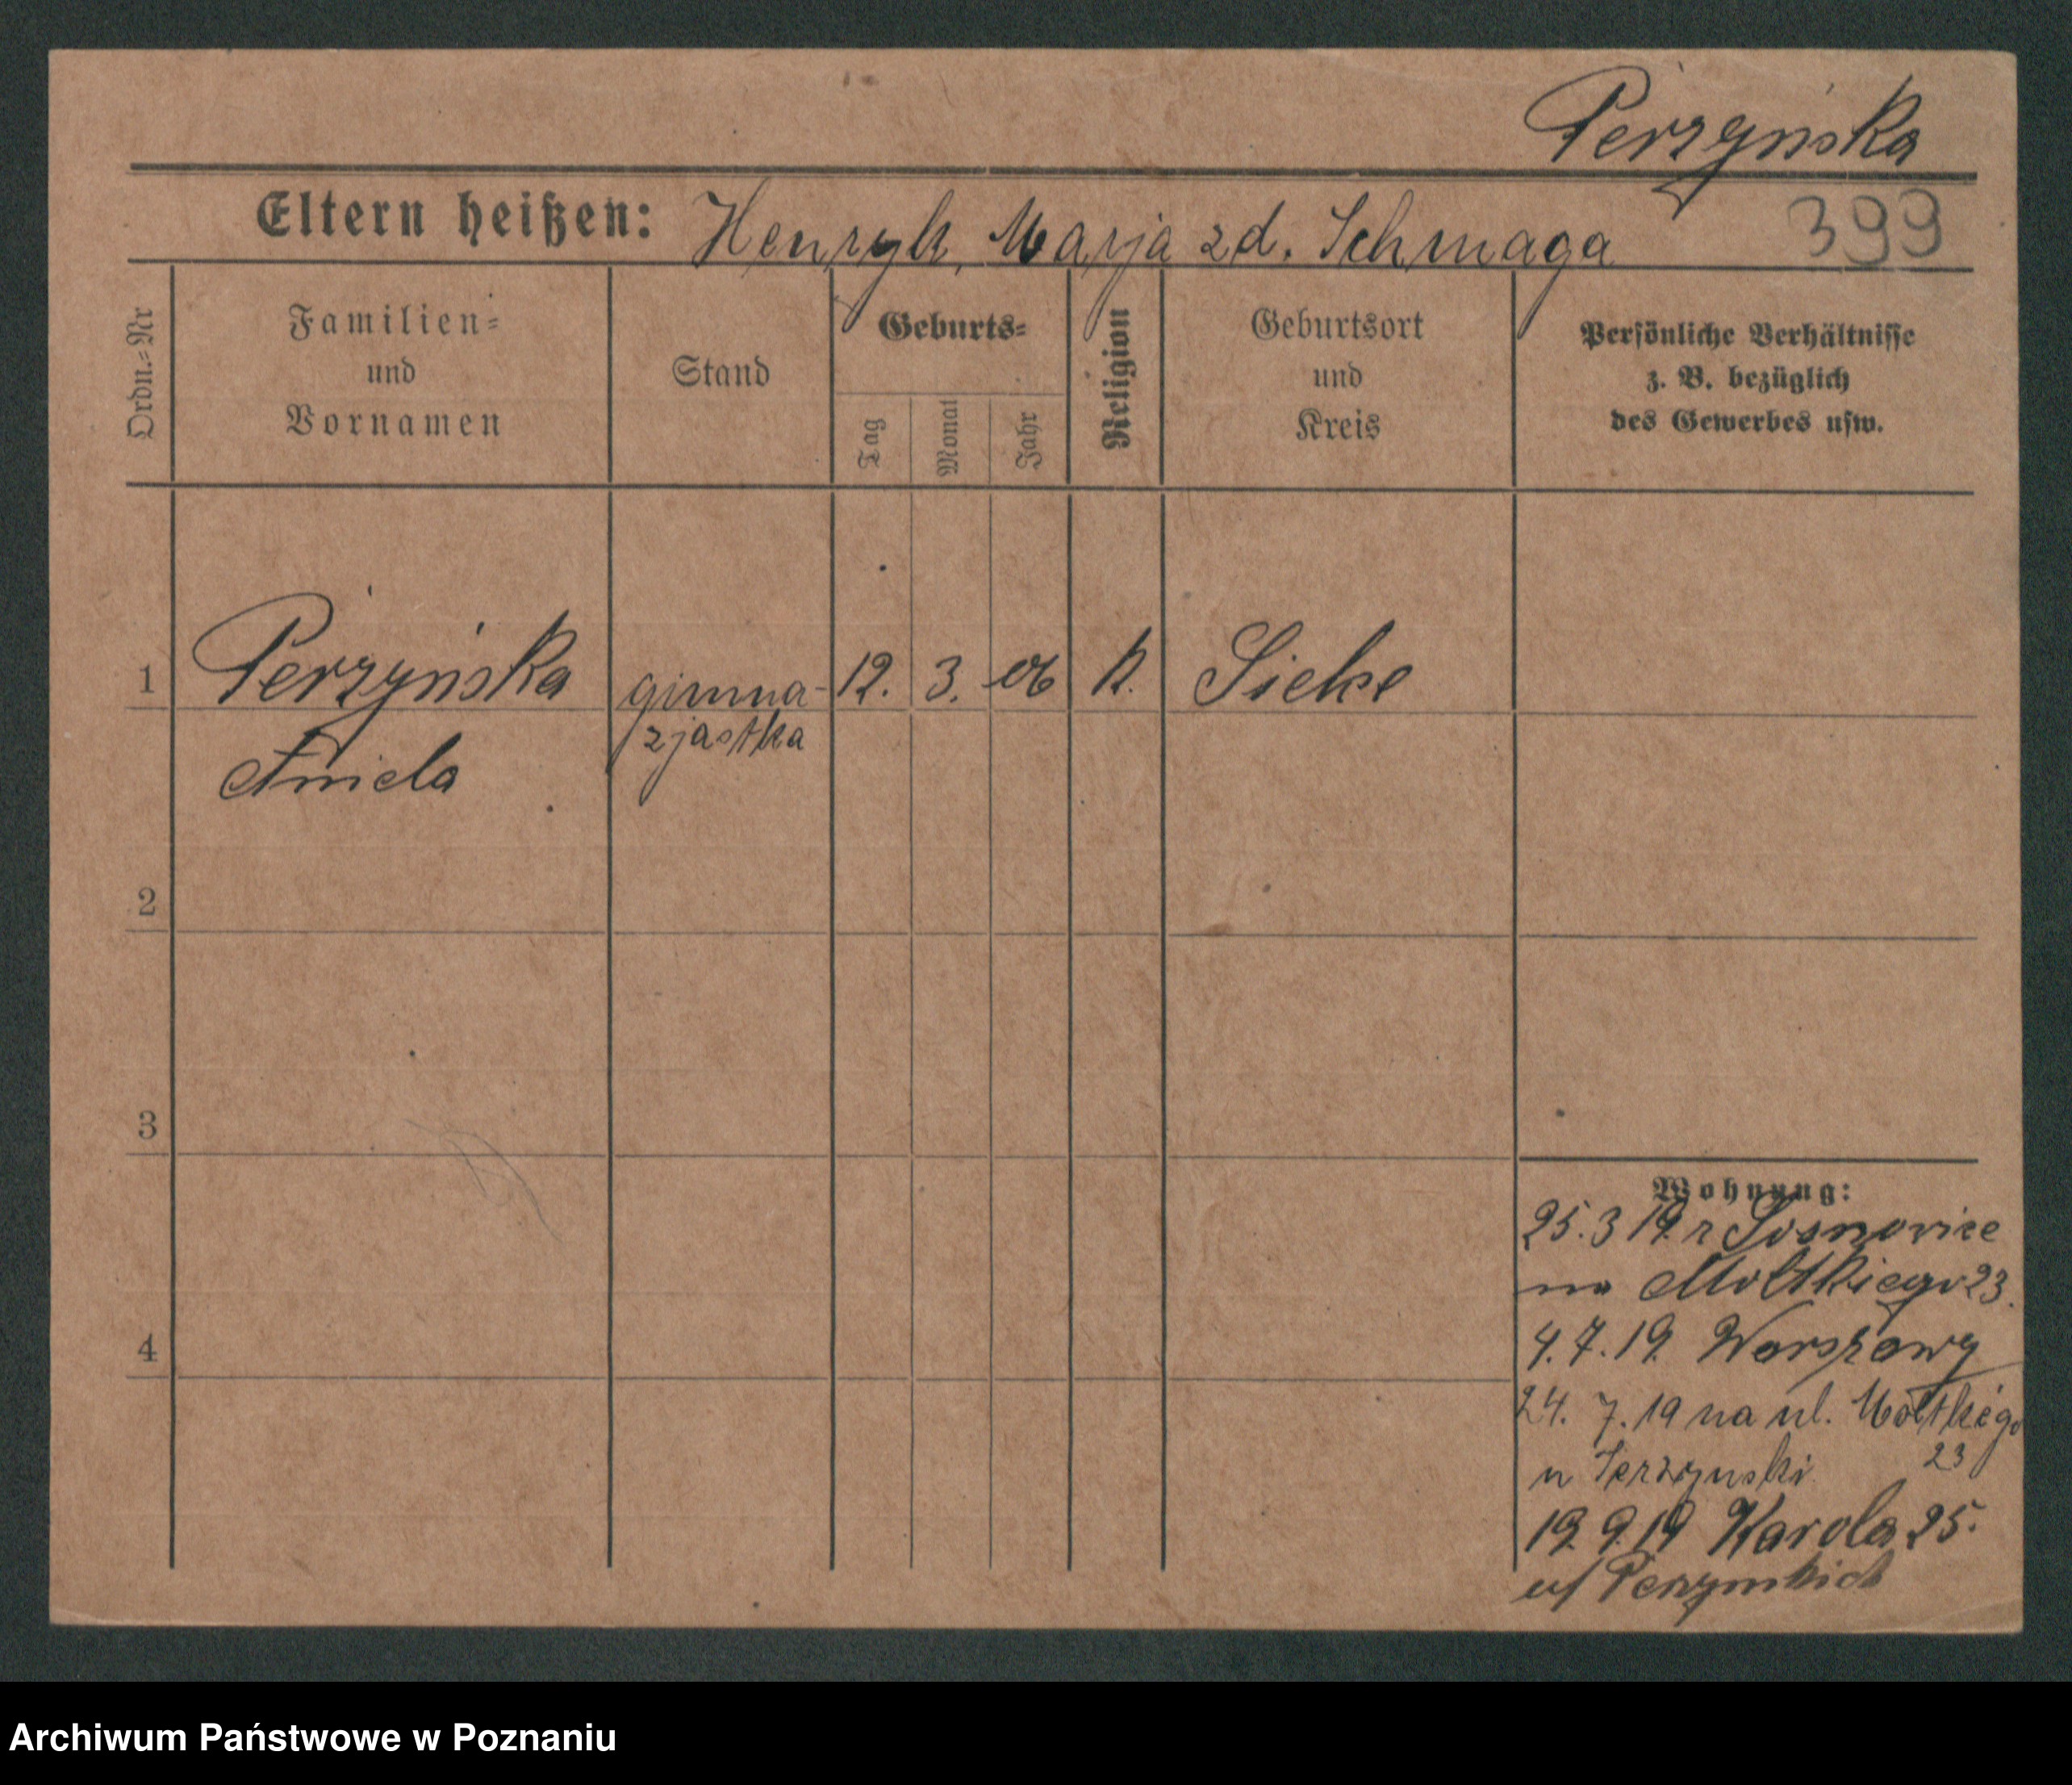 Perzyńska
Eltern heißen: Henryk, Marja zd. Schmaga
399
Ordn.=Nr
Familien=
und
Vornamen
Stand
Geburts=
Tag
Monat
Jahr
Religion
Geburtsort
und
Kreis
Persönliche Verhältnisse
z. B. bezüglich
des Gewerbes usw.
1 Perzyńska gimna- 12. 3. 06 k.
zjastka
Aniela
2
3
4
Wohnung:
25.3 19. z Sosnowice
na Moltkiego 23.
4.7.19. Warszawy
24. 7. 19 na ul. Moltkego
u Perzynski 23
19.9.19 Karola 25.
Archiwum Państwowe w Poznaniu